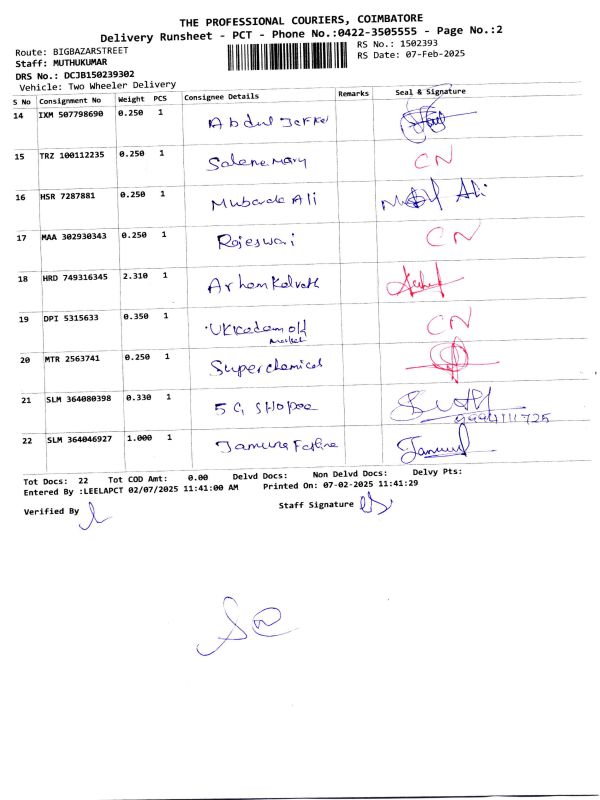 THE PROFESSIONAL COURIERS, COIMBATORE
Delivery Runsheet - PCT - Phone No.:0422-3505555 - Page No.:2
Route: BIGBAZARSTREET
RS No.: 1502393
Staff: MUTHUKUMAR
RS Date: 07-Feb-2025
DRS No.: DCJB150239302
Vehicle: Two Wheeler Delivery
S No Consignment No Weight PCS Consignee Details Remarks Seal & Signature
14 IXM 507798690 0.250 1 Abdul Jakkel
15 TRZ 100112235 0.250 1 Salenemary CN
16 HSR 7287881 0.250 1 Mubarak Ali Ali
17 MAA 302930343 0.250 1 Rajeswari CN
18 HRD 749316345 2.310 1
19 DPI 5315633 0.350 1 Ukkadam old CN
market
20 MTR 2563741 0.250 1 Superchemicals
21 SLM 364080398 0.330 1 5 G Shopee
9994111725
22 SLM 364046927 1.000 1
Tot Docs: 22 Tot COD Amt: 0.00 Delvd Docs: Non Delvd Docs: Delvy Pts:
Entered By :LEELAPCT 02/07/2025 11:41:00 AM Printed On: 07-02-2025 11:41:29
Verified By Staff Signature